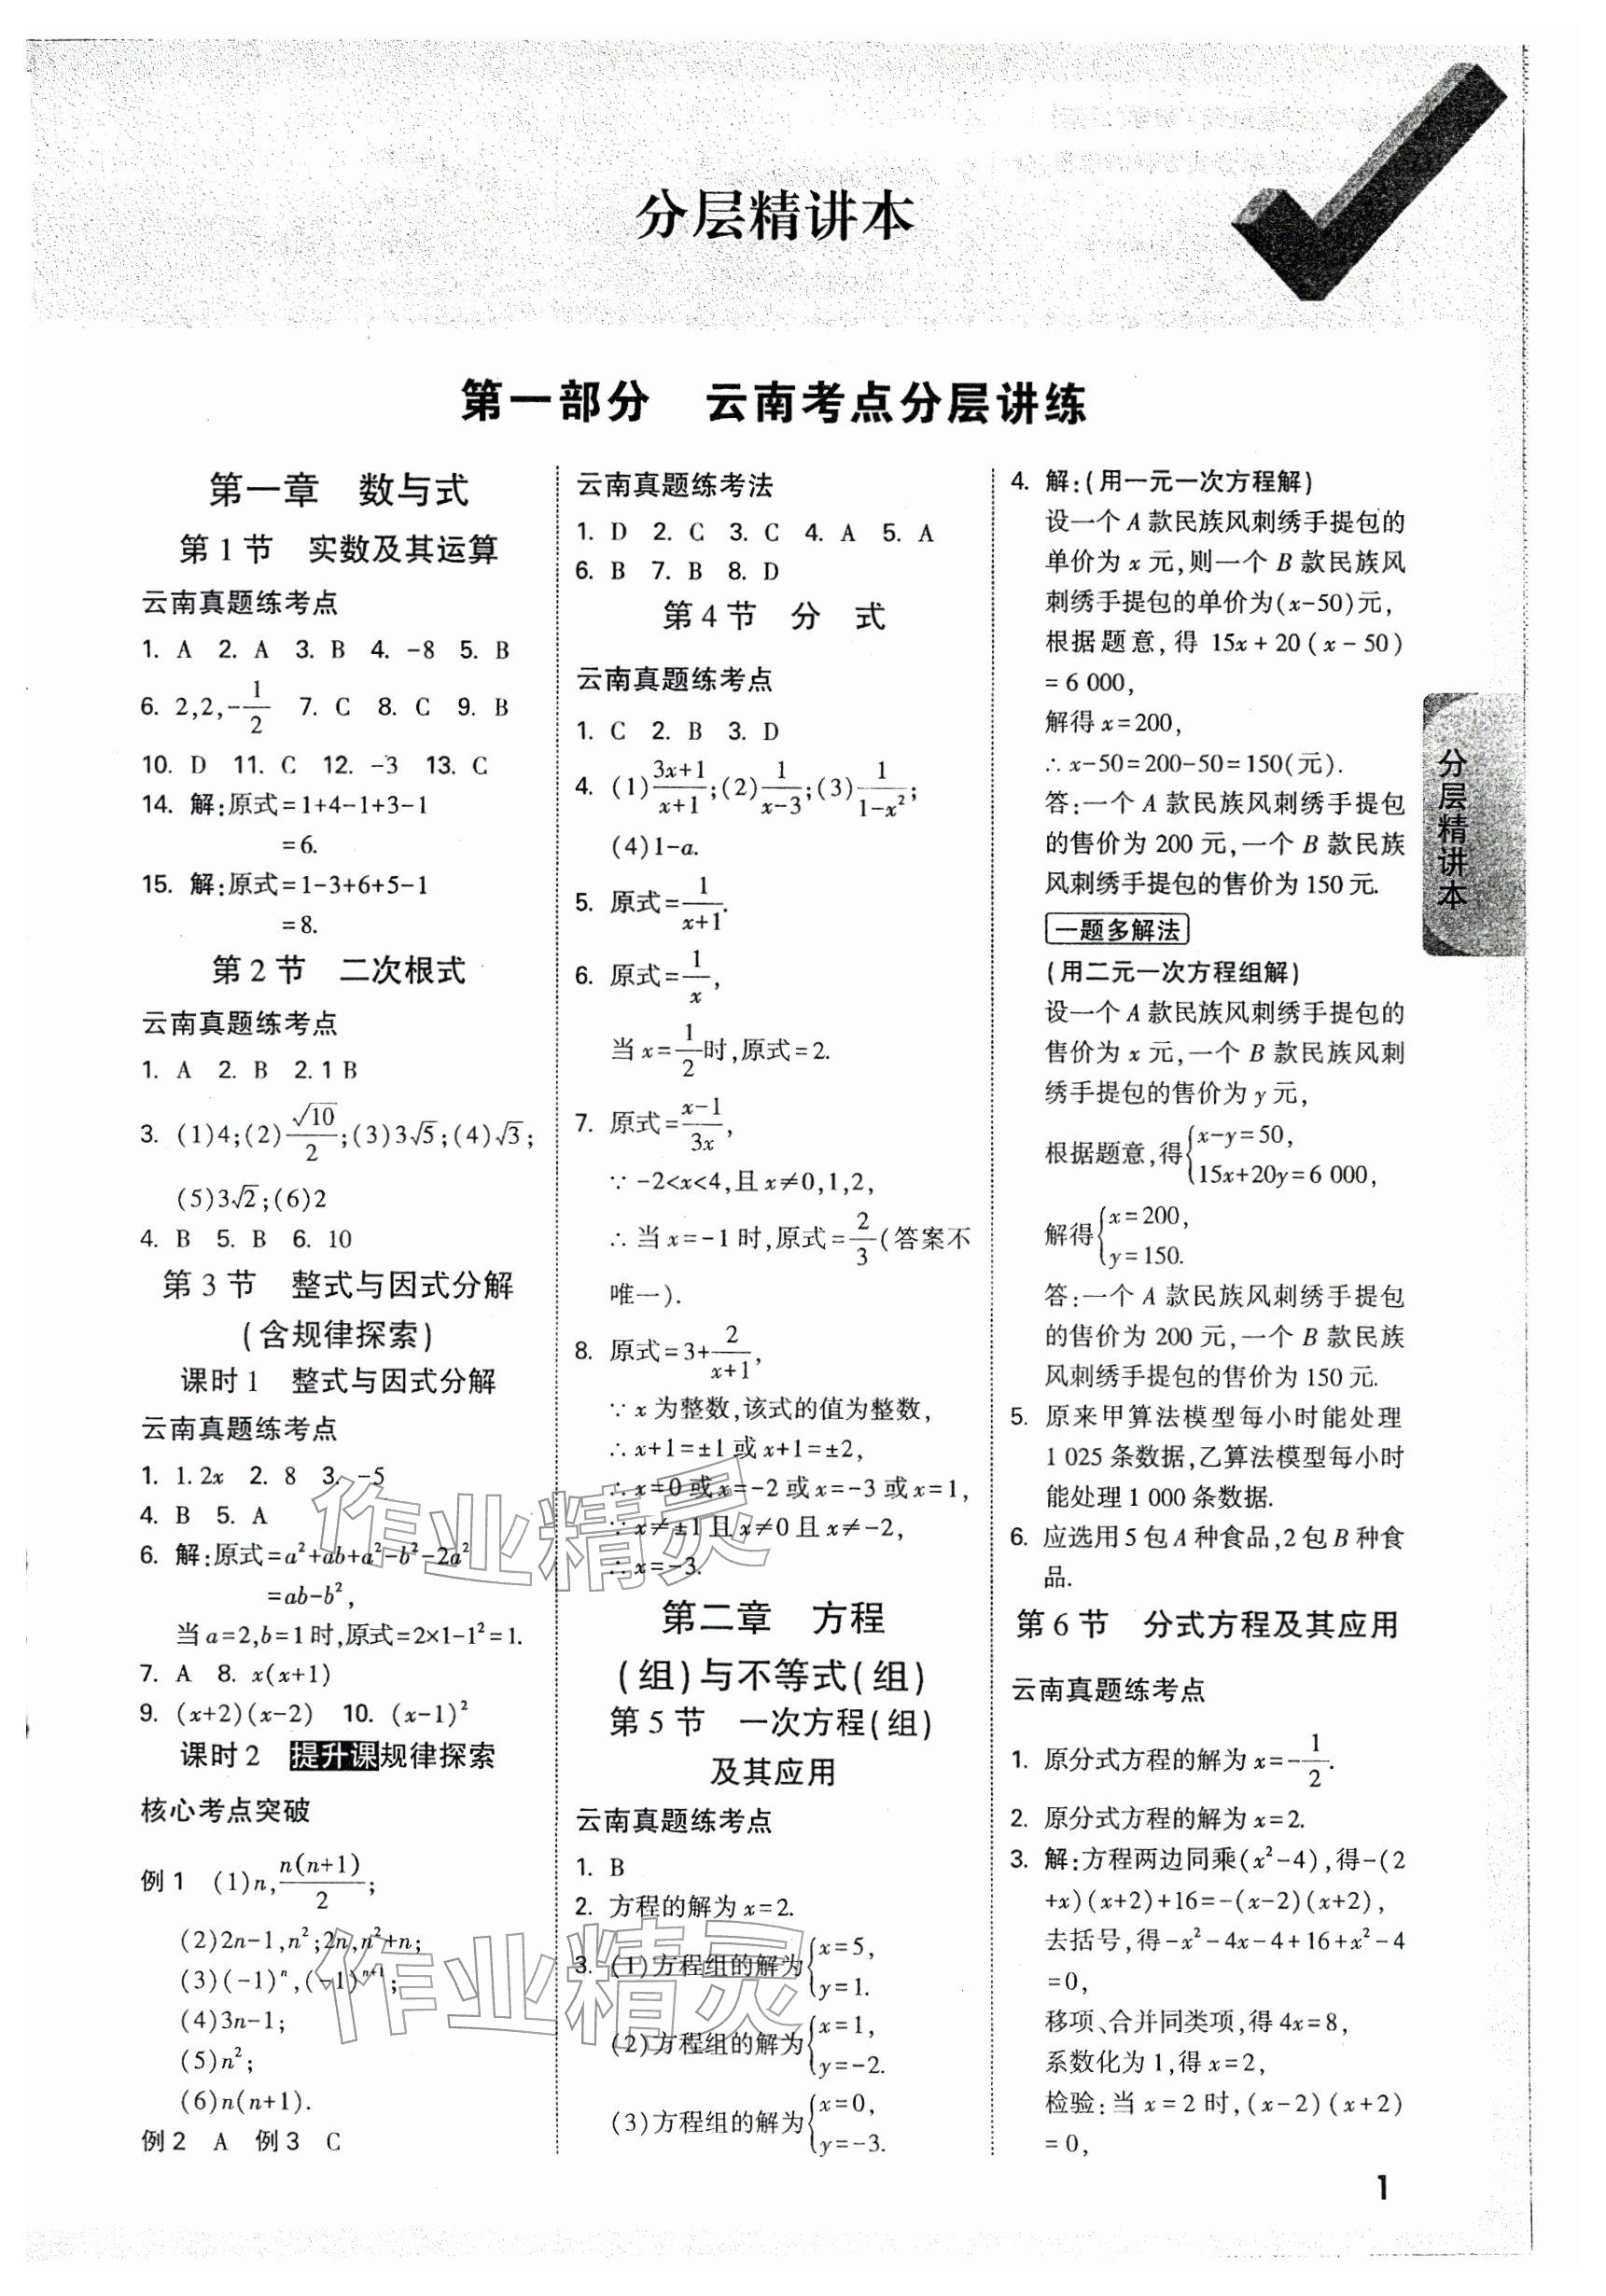 分层精讲本
第一部分　云南考点分层讲练
第一章　数与式
第 1 节　实数及其运算
云南真题练考点
1. A　2. A　3. B　4. -8　5. B
6. 2,2,-1/2　7. C　8. C　9. B
10. D　11. C　12. -3　13. C
14. 解:原式=1+4-1+3-1
=6.
15. 解:原式=1-3+6+5-1
=8.
第 2 节　二次根式
云南真题练考点
1. A　2. B　2.1 B
3. (1)4;(2)√10/2;(3)3√5;(4)√3;
(5)3√2;(6)2
4. B　5. B　6. 10
第 3 节　整式与因式分解
(含规律探索)
课时 1　整式与因式分解
云南真题练考点
1. 1.2x　2. 8　3. -5
4. B　5. A
6. 解:原式=a²+ab+a²-b²-2a²
=ab-b²,
当 a=2,b=1 时,原式=2×1-1²=1.
7. A　8. x(x+1)
9. (x+2)(x-2)　10. (x-1)²
课时 2　提升课规律探索
核心考点突破
例 1　(1)n,n(n+1)/2;
(2)2n-1,n²;2n,n²+n;
(3)(-1)ⁿ,(-1)ⁿ⁺¹;
(4)3n-1;
(5)n²;
(6)n(n+1).
例 2　A　例 3　C
云南真题练考法
1. D　2. C　3. C　4. A　5. A
6. B　7. B　8. D
第 4 节　分　式
云南真题练考点
1. C　2. B　3. D
4. (1)(3x+1)/(x+1);(2)1/(x-3);(3)1/(1-x²);
(4)1-a.
5. 原式=1/(x+1).
6. 原式=1/x,
当 x=1/2时,原式=2.
7. 原式=(x-1)/3x,
∵ -2<x<4,且 x≠0,1,2,
∴ 当 x=-1 时,原式=2/3(答案不
唯一).
8. 原式=3+2/(x+1),
∵ x 为整数,该式的值为整数,
∴ x+1=±1 或 x+1=±2,
∴ x=0 或 x=-2 或 x=-3 或 x=1,
∵ x≠±1 且 x≠0 且 x≠-2,
∴ x=-3.
第二章　方程
(组)与不等式(组)
第 5 节　一次方程(组)
及其应用
云南真题练考点
1. B
2. 方程的解为 x=2.
3. (1)方程组的解为{x=5,
y=1.
(2)方程组的解为{x=1,
y=-2.
(3)方程组的解为{x=0,
y=-3.
4. 解:(用一元一次方程解)
设一个 A 款民族风刺绣手提包的
单价为 x 元,则一个 B 款民族风
刺绣手提包的单价为(x-50)元,
根据题意,得 15x+20(x-50)
=6 000,
解得 x=200,
∴ x-50=200-50=150(元).
答:一个 A 款民族风刺绣手提包
的售价为 200 元,一个 B 款民族
风刺绣手提包的售价为 150 元.
一题多解法
(用二元一次方程组解)
设一个 A 款民族风刺绣手提包的
售价为 x 元,一个 B 款民族风刺
绣手提包的售价为 y 元,
根据题意,得{x-y=50,
15x+20y=6 000,
解得{x=200,
y=150.
答:一个 A 款民族风刺绣手提包
的售价为 200 元,一个 B 款民族
风刺绣手提包的售价为 150 元.
5. 原来甲算法模型每小时能处理
1 025 条数据,乙算法模型每小时
能处理 1 000 条数据.
6. 应选用 5 包 A 种食品,2 包 B 种食
品.
第 6 节　分式方程及其应用
云南真题练考点
1. 原分式方程的解为 x=-1/2.
2. 原分式方程的解为 x=2.
3. 解:方程两边同乘(x²-4),得-(2
+x)(x+2)+16=-(x-2)(x+2),
去括号,得-x²-4x-4+16+x²-4
=0,
移项、合并同类项,得 4x=8,
系数化为 1,得 x=2,
检验:当 x=2 时,(x-2)(x+2)
=0,
分层精讲本
1
作业精灵
作业精灵